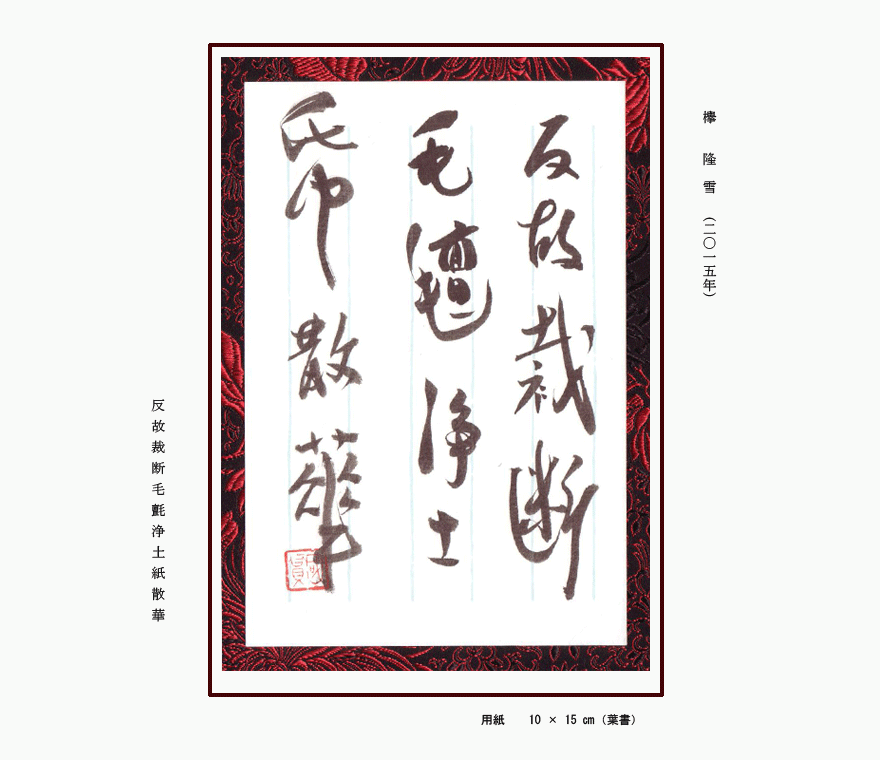 欅 隆雪 (二〇一五年)
反故裁断
毛氈浄土
帋散華
反故裁断毛氈浄土紙散華
用紙 10 × 15 cm (葉書)